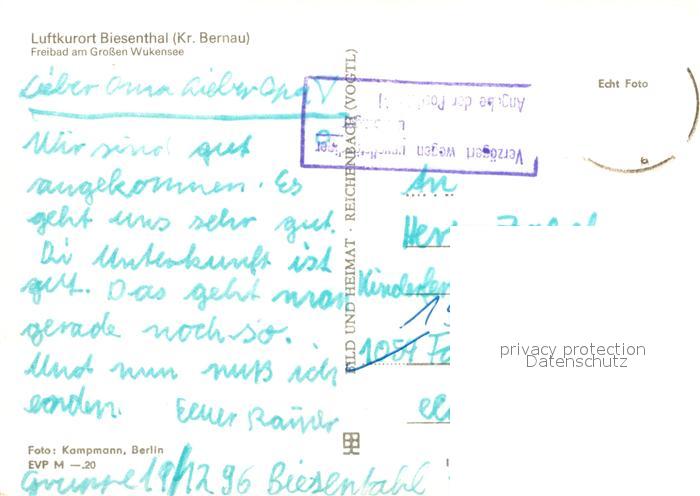 Luftkurort Biesenthal (Kr. Bernau)
Freibad am Großen Wukensee
Echt Foto
Lieber Oma Lieber Opa
Wir sind gut
angekommen. Es
geht uns sehr gut.
Di Unterkunft ist
gut. Das geht man
gerade noch so.
Und nun muß ich
enden. Eeuer Rainer
Foto: Kampmann, Berlin
EVP M —.20
19/12 96 Biesentahl
BILD UND HEIMAT · REICHENBACH (VOGTL)
Verzögert wegen
Angabe der
An
Kinder
1054
privacy protection
Datenschutz